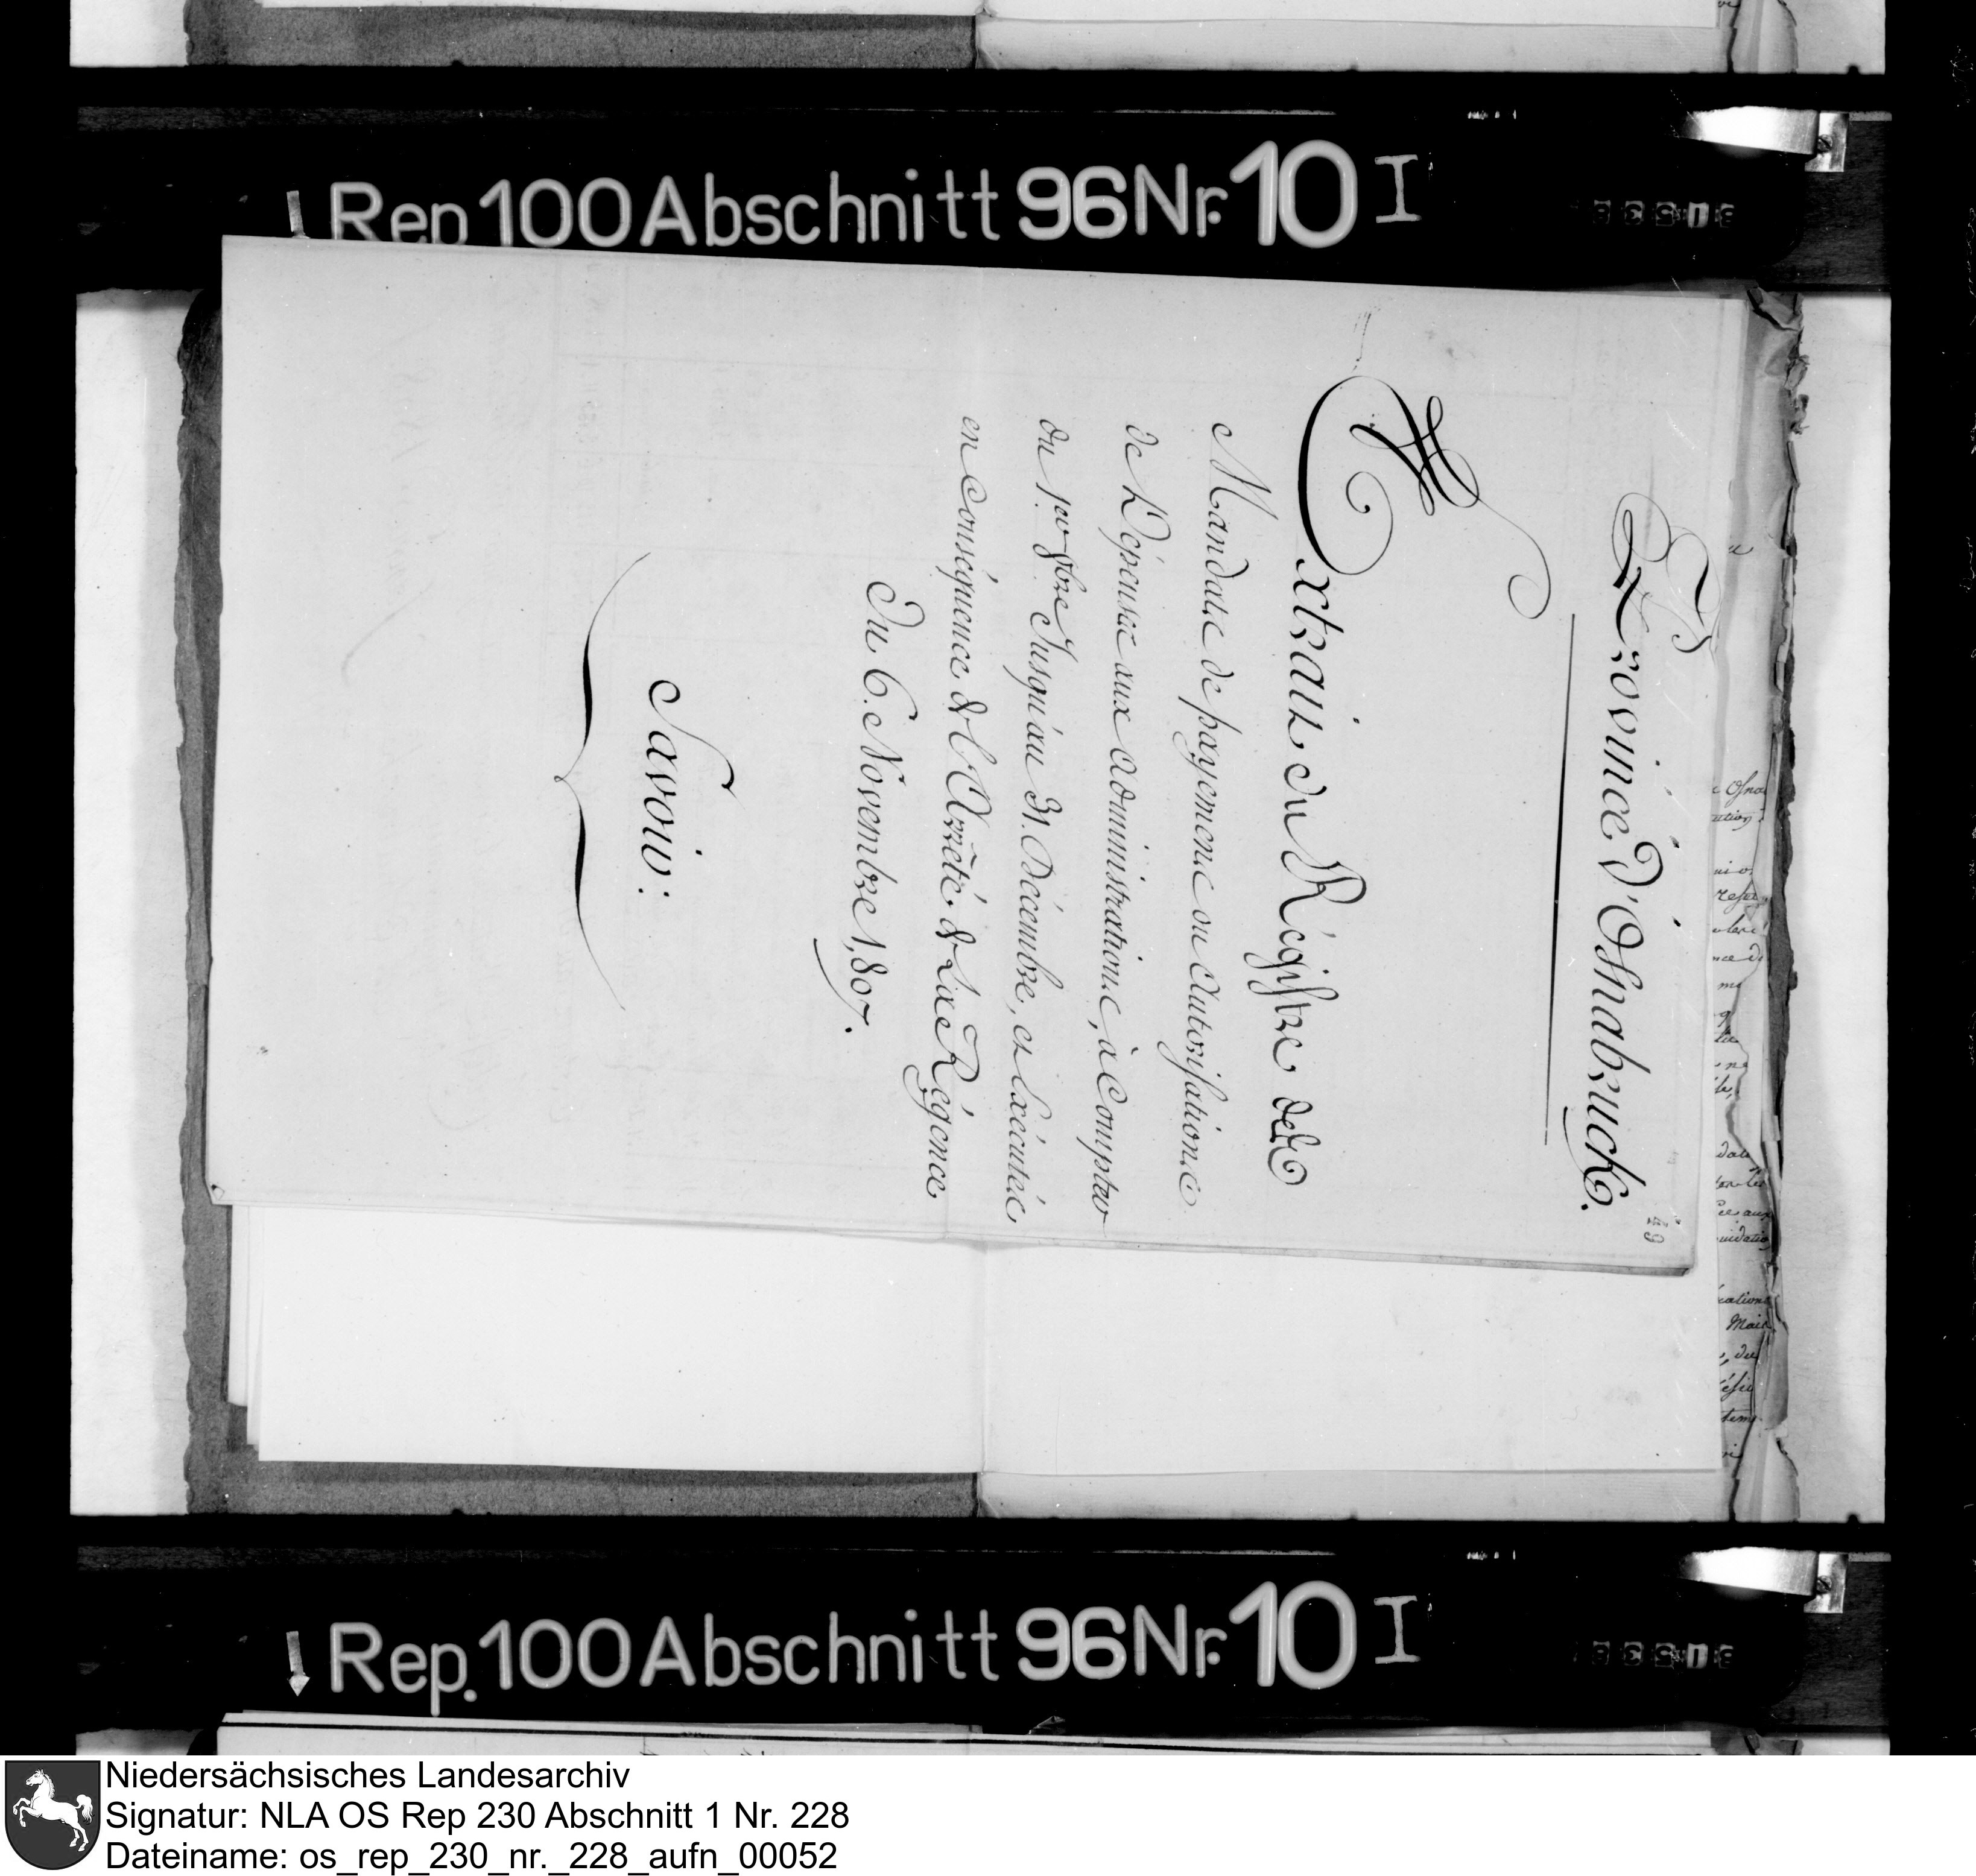 Rep 100 Abschnitt 96 Nr. 10 I
49
Province d'Osnabruck.
Extrait du Régistre des
Mandats de payement ou Autorisations
de Dépense aux administrations, à Compter
du 1er 9bre Jusqu'au 31. Décembre, et Exécutés
en Conséquence de l'Arrêté de La Régence
Du 6. Novembre 1,807.
Savoir:
Rep. 100 Abschnitt 96 Nr. 10 I
Niedersächsisches Landesarchiv
Signatur: NLA OS Rep 230 Abschnitt 1 Nr. 228
Dateiname: os_rep_230_nr._228_aufn_00052